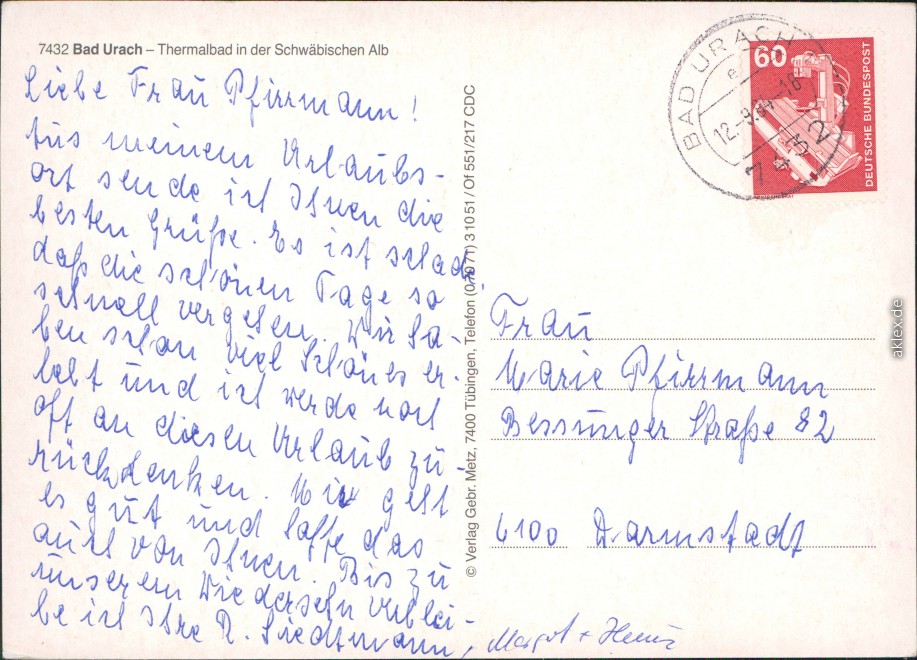 7432 Bad Urach – Thermalbad in der Schwäbischen Alb
Liebe Frau Pfirrmann!
Aus meinem Urlaubs-
ort sende ich Ihnen die
besten Grüße. Es ist schade
daß die schönen Tage so
schnell vergehen. Wir ha-
ben schon viel Schönes er-
lebt und ich werde noch
oft an diesen Urlaub zu-
rückdenken. Mir geht
es gut und hoffe das
auch von Ihnen. Bis zu
unserem Wiedersehn verblei-
be ich Ihre R. Siedtmann,
Margot + Heinz
© Verlag Gebr. Metz, 7400 Tübingen, Telefon (0 70 71) 3 10 51 / Of 551/217 CDC
BAD URACH
e
12.-9.84-18
7432
60
DEUTSCHE BUNDESPOST
Frau
Marie Pfirrmann
Bessunger Straße 82
6100 Darmstadt
aklex.de